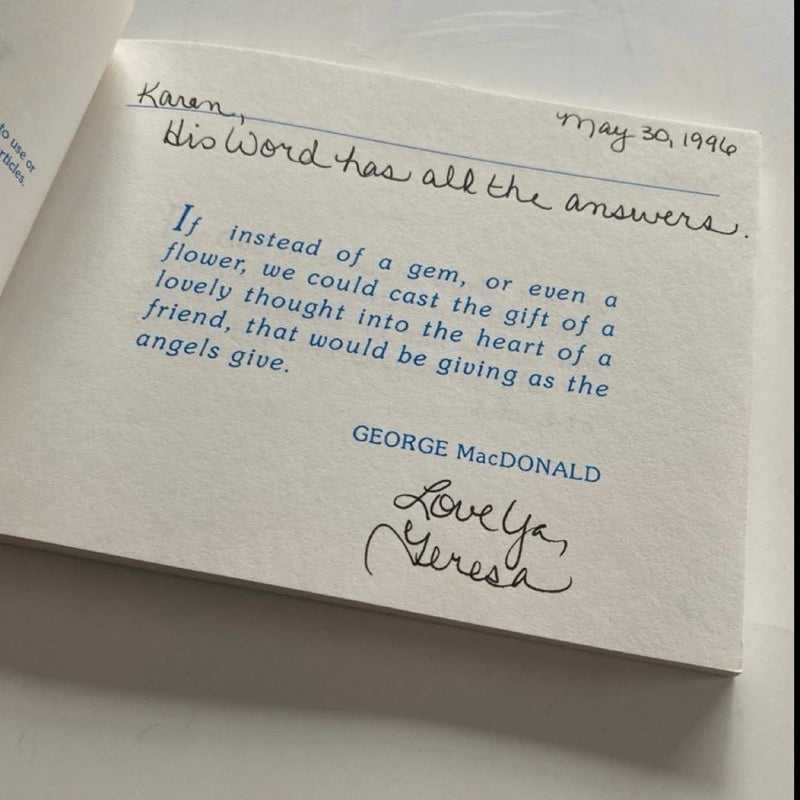 to use or
rticles.
Karen,
May 30, 1996
His Word has all the answers.
If instead of a gem, or even a
flower, we could cast the gift of a
lovely thought into the heart of a
friend, that would be giving as the
angels give.
GEORGE MacDONALD
Love Ya,
Teresa